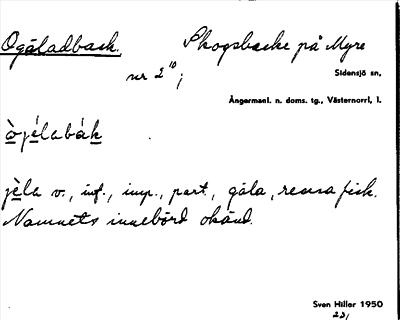 Ogäladback. Skogsbacke på Myre
nr 2¹⁰;
Sidensjö sn,
Ångermanl. n. doms. tg., Västernorrl, l.
òjélabák
jèla v., inf., imp., part., gäla, rensa fisk.
Namnets innebörd okänd.
Sven Hiller 1950